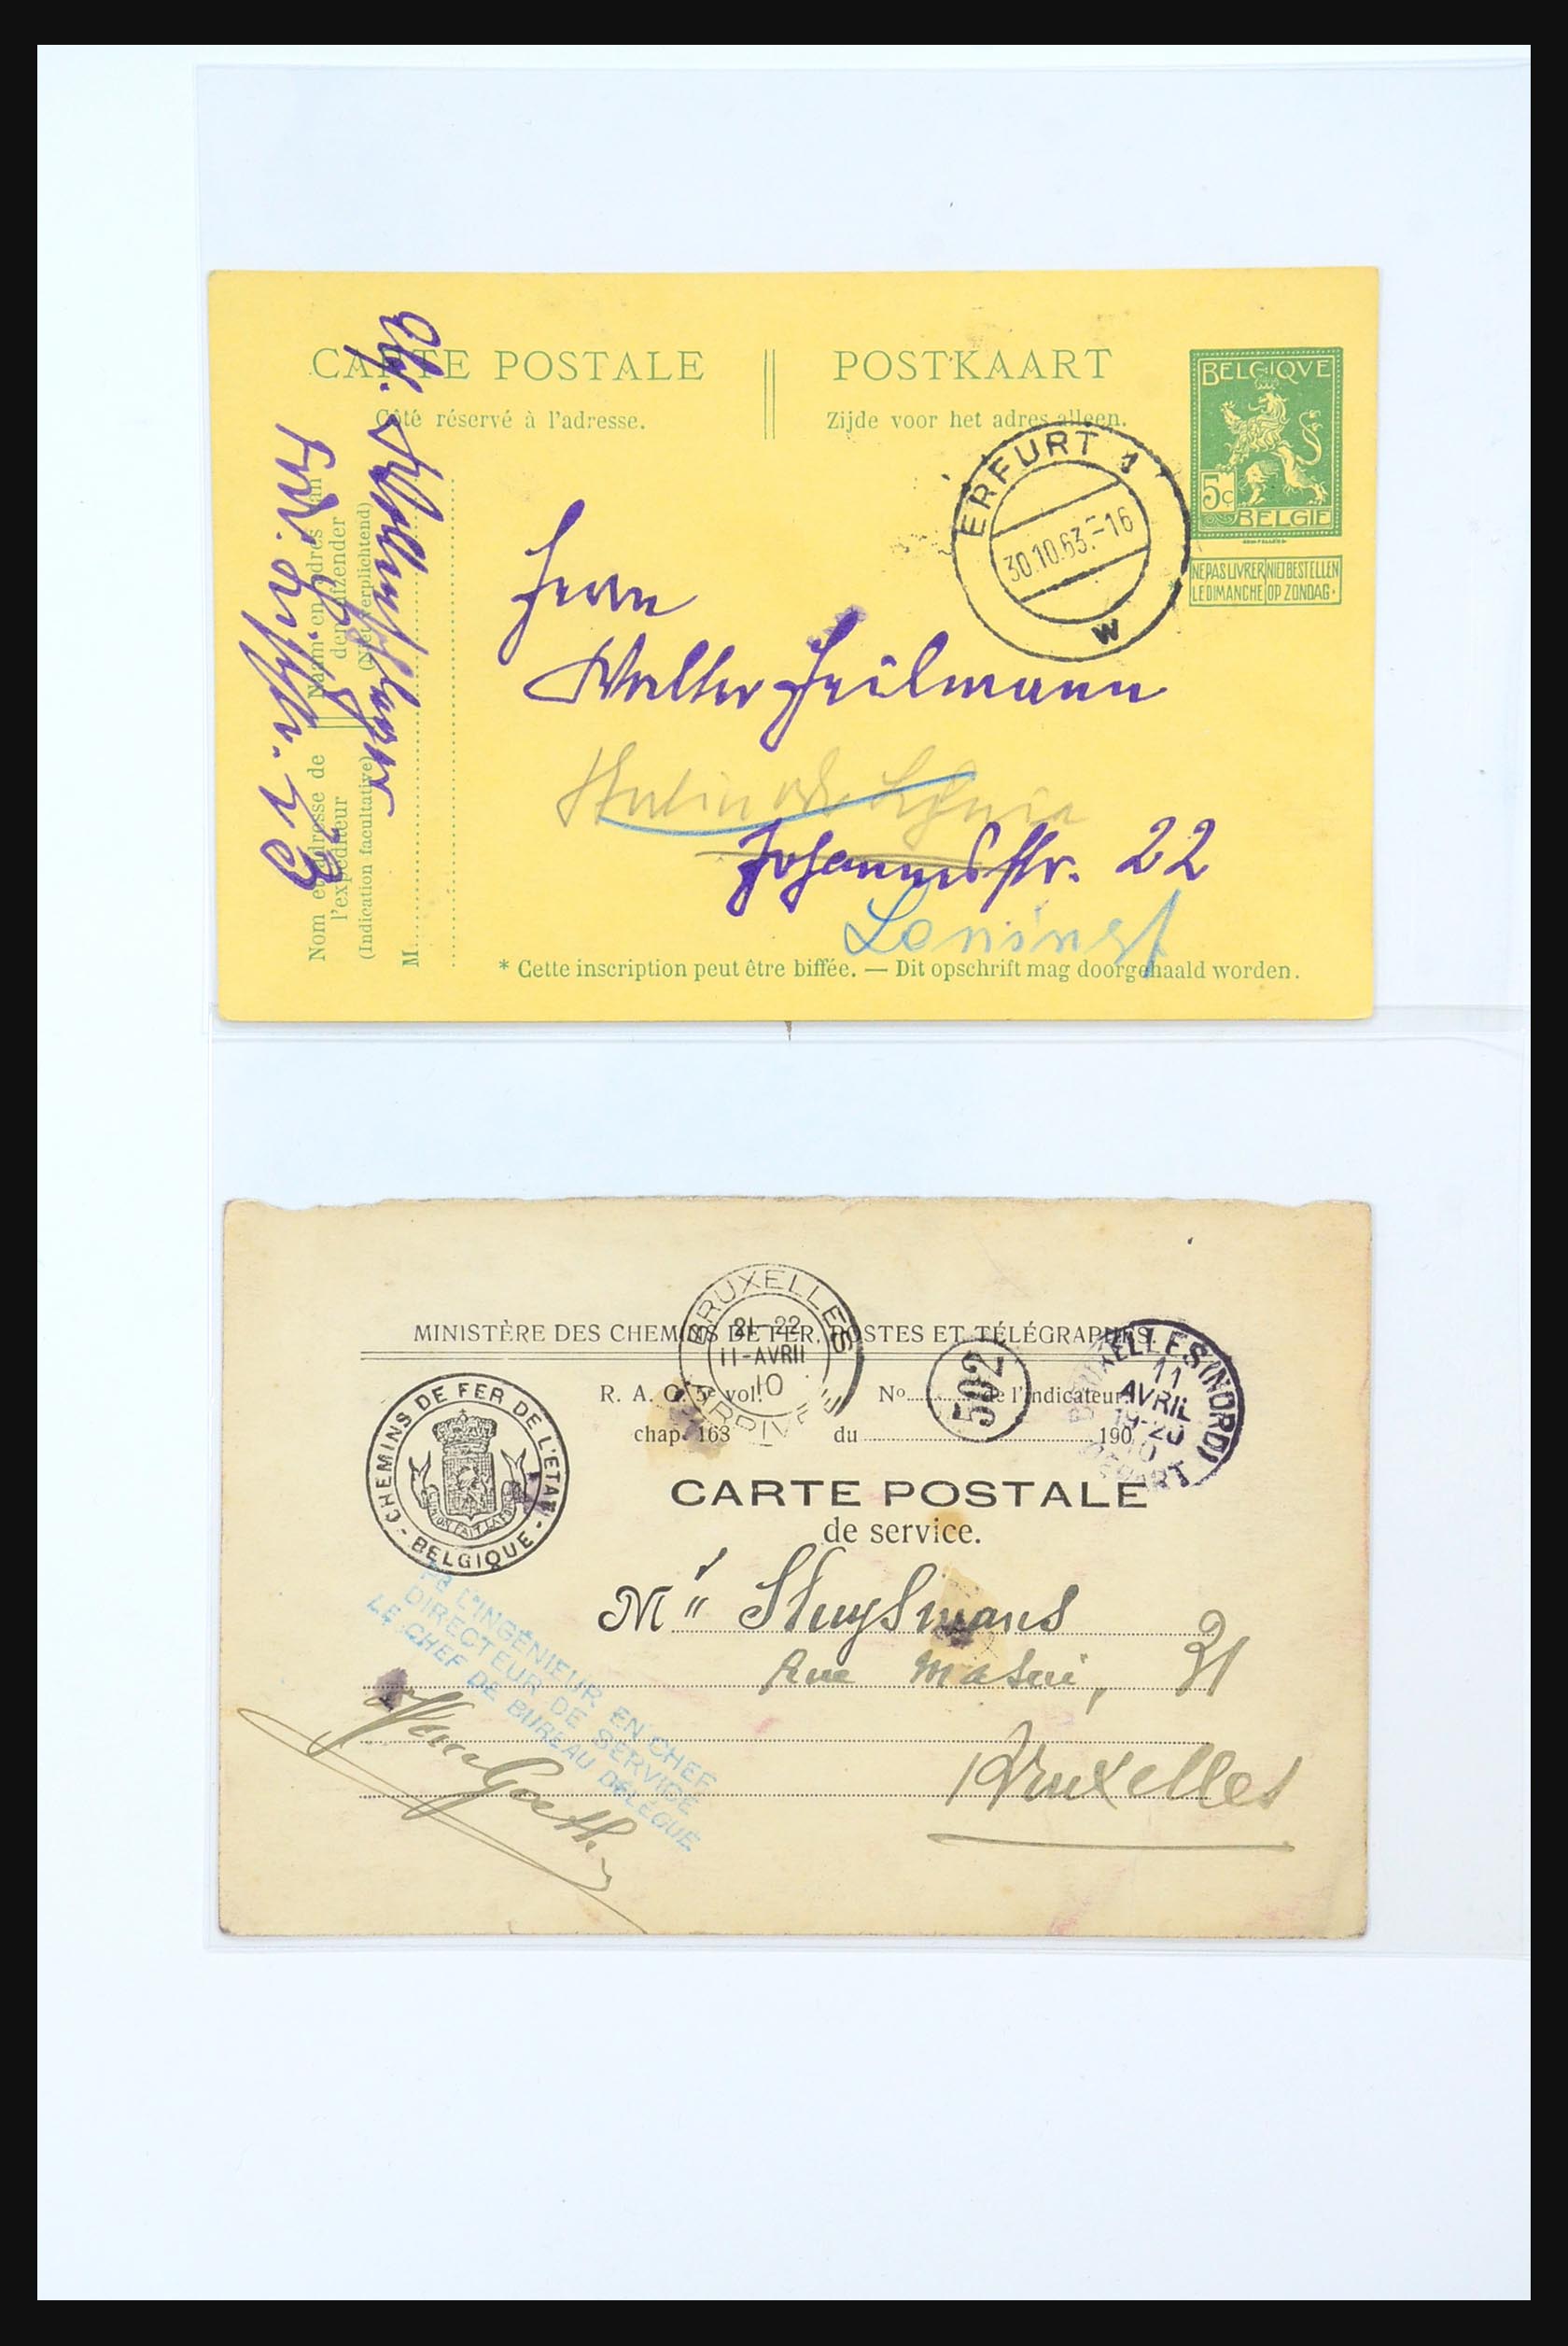 CARTE POSTALE POSTKAART
Côté réservé à l'adresse. Zijde voor het adres alleen.
BELGIQVE
5c
BELGIE
NE PAS LIVRER LE DIMANCHE
NIET BESTELLEN OP ZONDAG.
ERFURT 1
30.10.63.-16
w
Herrn
Walter Heilmann
Johannesstr. 22
* Cette inscription peut être biffée. — Dit opschrift mag doorgehaald worden.
Nom et adresse de l'expéditeur
(Indication facultative)
Naam en adres van den afzender
(Niet verplichtend)
M
MINISTÈRE DES CHEMINS DE FER, POSTES ET TÉLÉGRAPHES.
BRUXELLES
21-22
11-AVRIL
10
ARRIVÉE
R. A. G. 5e vol.
chap. 163
No de l'Indicateur.
du 190
502
BRUXELLES (NORD)
11
AVRIL
19-20
10
DEPART
CHEMINS DE FER DE L'ETAT
BELGIQUE
CARTE POSTALE
de service.
M
Rue Masui, 31
Bruxelles
L'INGÉNIEUR EN CHEF
DIRECTEUR DE SERVICE
LE CHEF DE BUREAU DÉLÉGUÉ